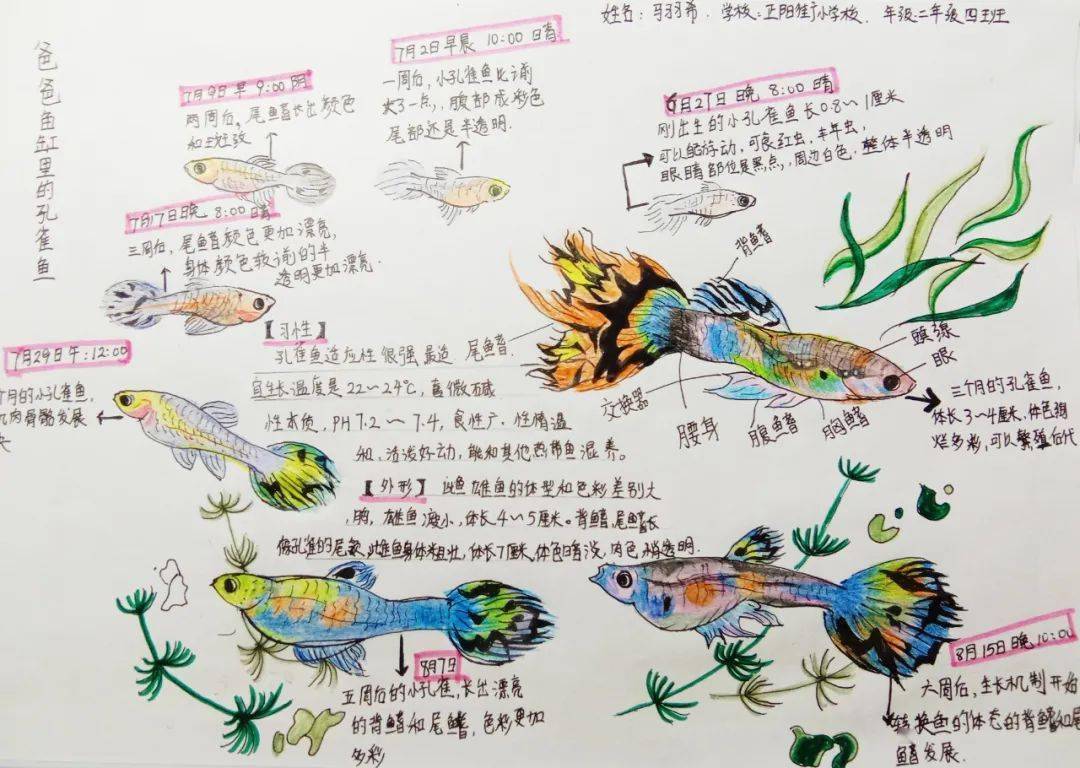 姓名：马羽希．学校：正阳街小学校．年级：二年级四班
爸爸鱼缸里的孔雀鱼
6月27日晚 8:00 晴
刚出生的小孔雀鱼长0.8～1厘米
可以能浮动，可食红虫，丰年虫，
眼睛部位是黑点，，周边白色．整体半透明
7月2日早晨 10:00 日晴
一周后，小孔雀鱼比前
大了一点，，腹部成彩色
尾部还是半透明．
7月9日早 9:00 阴
两周后，尾鳍长出颜色
和斑纹
7月17日晚 8:00 晴
三周后，尾鳍颜色更加漂亮，
身体颜色较前的半
透明更加漂亮．
7月29日午:12:00
个月的小孔雀鱼，
肌肉骨骼发展
【习性】
孔雀鱼适应性很强最适
宜生长温度是22～24℃，喜微碱
性水质，PH7.2～7.4，食性广．性情温
和、活泼好动，能和其他热带鱼混养。
【外形】 鱼雄鱼的体型和色彩差别大
，雄鱼瘦小，体长4～5厘米。背鳍、尾鳍长
像孔雀的尾 ，雌鱼身体粗壮，体长7厘米，体色暗淡，肉色稍透明．
背鳍
尾鳍．
交换器
腰身
腹鳍
胸鳍
头线
眼
三个月的孔雀鱼，
体长3～4厘米，体色绚
烂多彩，可以繁殖后代
8月7日
五周后的小孔雀，长出漂亮
的背鳍和尾鳍，色彩更加
多彩
8月15日晚10:00
六周后，生长机制开始
转换鱼的体态的背鳍和尾
鳍发展．